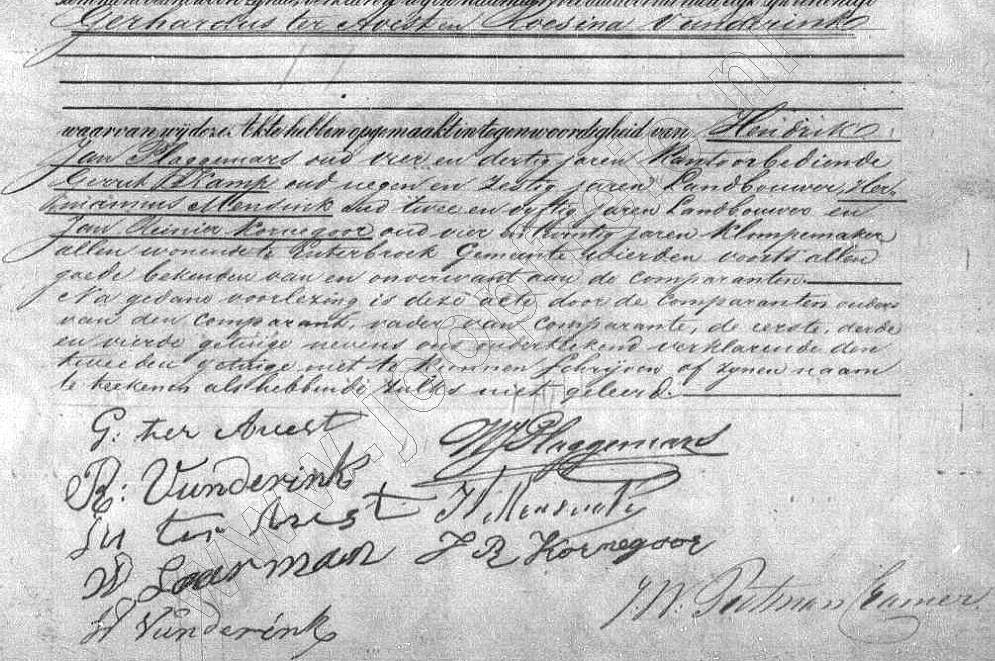 Gerhardus ter Avest en Roesina Vunderink
waarvan wij deze Akte hebben opgemaakt in tegenwoordigheid van Hendrik
Jan Plaggemars oud vier en dertig jaren Kantoorbediende
Gerrit Kamp oud negen en zestig jaren Landbouwer, Her-
mannus Mensink oud twee en vyftig jaren Landbouwer en
Jan Reinier Kornegoor oud vier en twintig jaren Klompemaker
allen wonende te Enterbroek Gemeente Wierden voorts allen
goede bekenden van en onverwant aan de comparanten.
Na gedane voorlezing is deze acte door de Comparanten, ouders
van den comparant, vader van Comparante, de eerste, derde
en vierde getuige nevens ons onderteekend verklarende den
tweeden getuige niet te kunnen schrijven of zynen naam
te teekenen als hebbende zulks niet geleerd.
G: ter Avest
R: Vunderink
ter Avest
W Laarman
W Vunderink
Plaggemars
H Mensink
J R Kornegoor
J. W. Cramer
www.